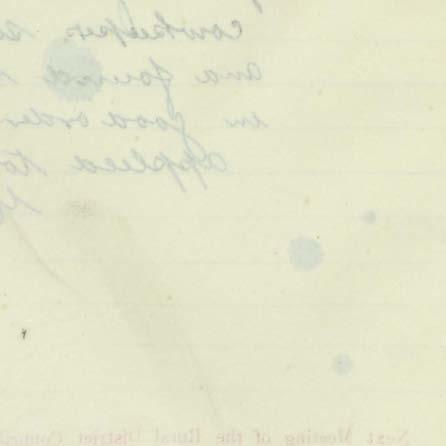 cowkeeper
and found
in good order
applied to
Next Meeting of the Rural District Council